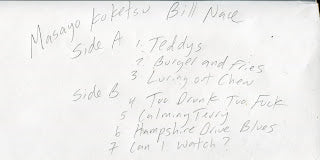 Masayo Koketsu Bill Nace
Side A 1. Teddys
2 Burger and Fries
3 Luring out Chew
Side B
4 Too Drunk Too Fuck
5 Calming Terry
6 Hampshire Drive Blues
7 Can I Watch?